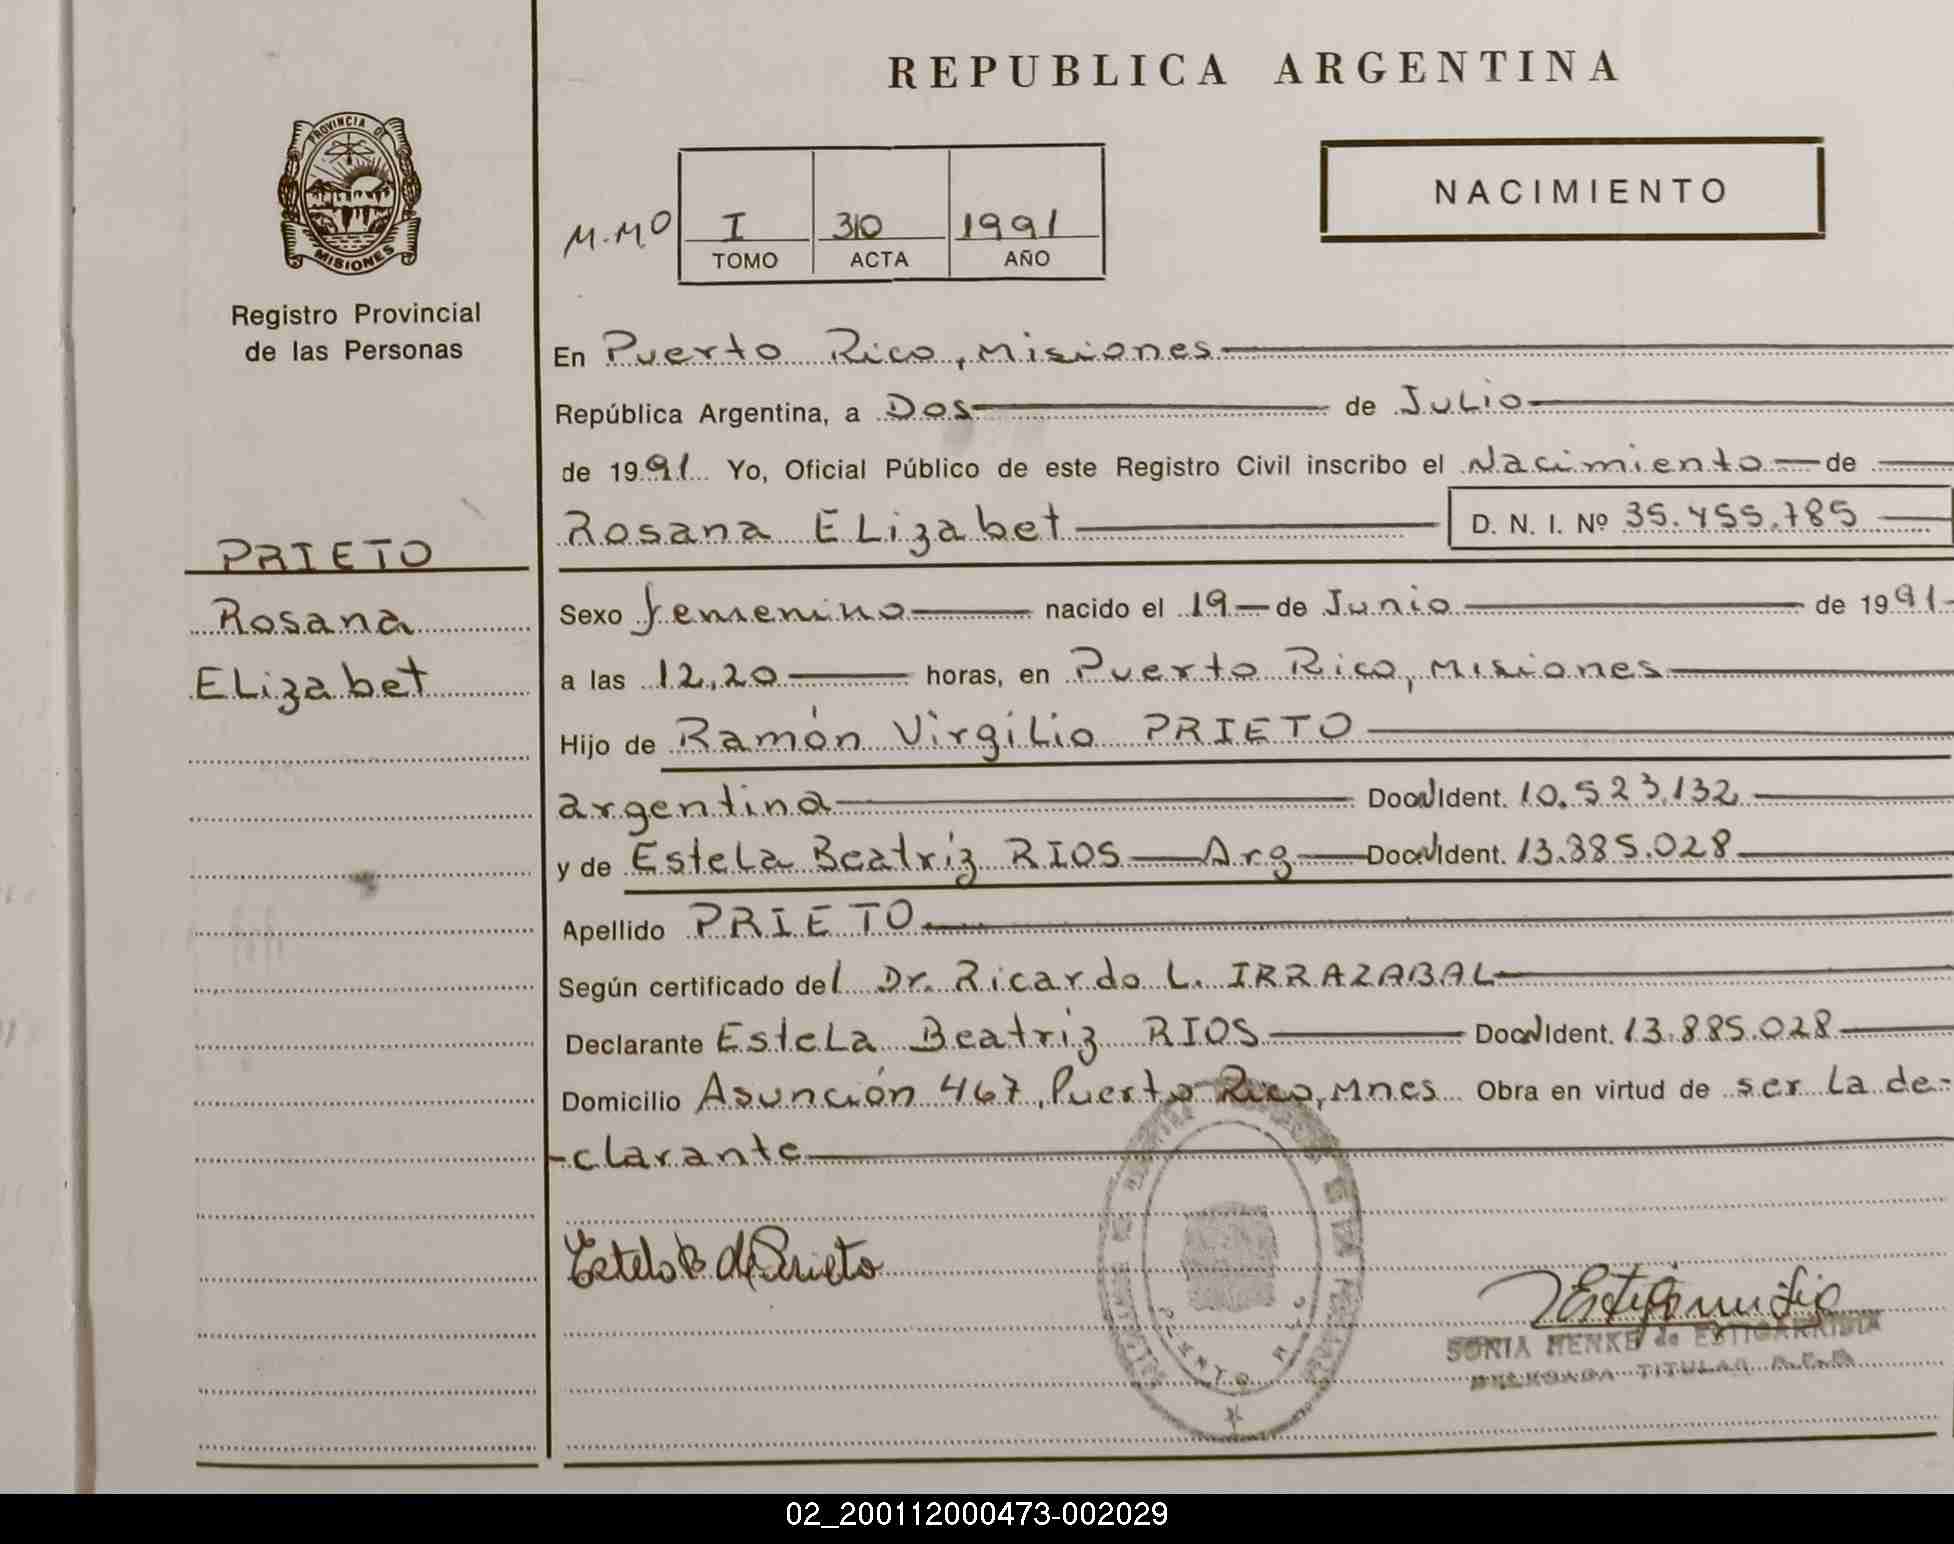 REPUBLICA ARGENTINA
PROVINCIA DE
MISIONES
Registro Provincial
de las Personas
NACIMIENTO
M.MO
I 310 1991
TOMO ACTA AÑO
En Puerto Rico, Misiones
República Argentina, a Dos de Julio
de 1991 Yo, Oficial Público de este Registro Civil inscribo el Nacimiento de
Rosana ELizabet D. N. I. Nº 35.455.785
PRIETO
Rosana
ELizabet
Sexo femenino nacido el 19 de Junio de 1991
a las 12,20 horas, en Puerto Rico, Misiones
Hijo de Ramón Virgilio PRIETO
argentina Doc. Ident. 10.523.132
y de Estela Beatriz RIOS Arg Doc. Ident. 13.885.028
Apellido PRIETO
Según certificado del Dr. Ricardo L. IRRAZABAL
Declarante Estela Beatriz RIOS Doc. Ident. 13.885.028
Domicilio Asunción 467, Puerto Rico, Mnes Obra en virtud de ser la de-
-clarante
Estela B de Prieto
SONIA HENKE de ESTIGARRIBIA
DELEGADA TITULAR R.P.P.
02_200112000473-002029